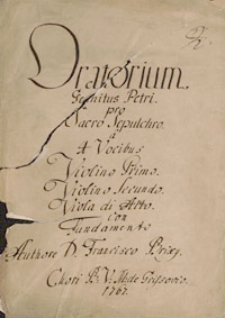 Oratorium.
Gemitus Petri.
pro
Sacro Sepulchro.
a
4 Vocibus
Violino Primo.
Violino Secundo.
Viola di Alto.
con
Fundamento
Authore D. Francisco Brixy.
Chori B. V.
1767.